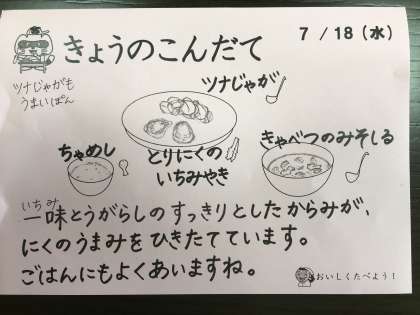 きょうのこんだて
7/18(水)
ツナじゃがも
うまいぽん
ツナじゃが
ちゃめし
とりにくの
いちみやき
きゃべつのみそしる
いちみ
一味とうがらしのすっきりとしたからみが、
にくのうまみをひきたてています。
ごはんにもよくあいますね。
おいしくたべよう!